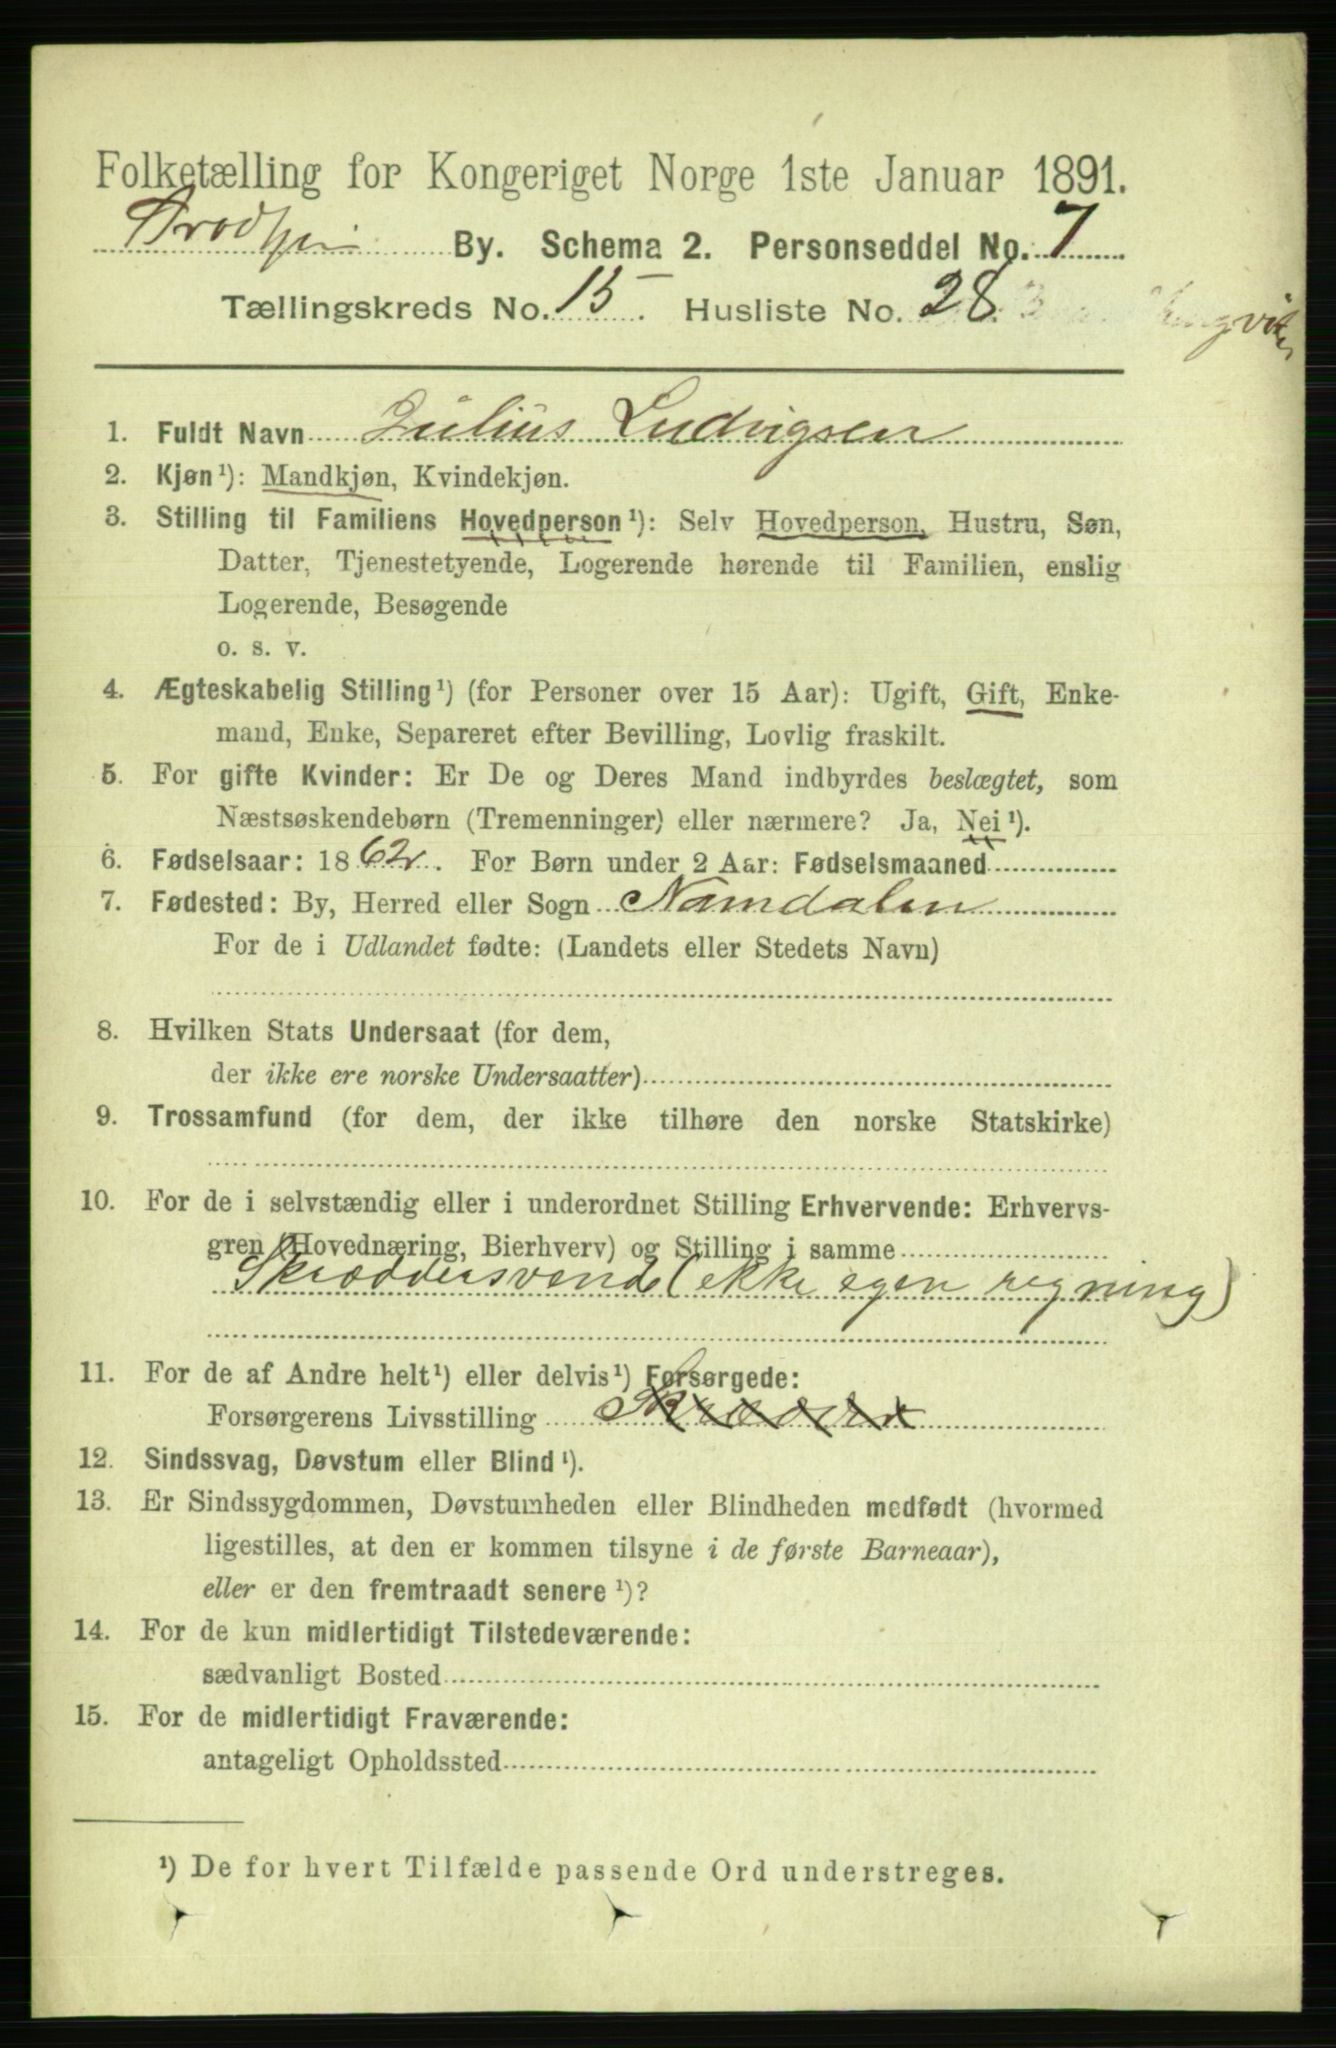 Folketælling for Kongeriget Norge 1ste Januar 1891.
Trodhjem By. Schema 2. Personseddel No. 7
Tællingskreds No. 15. Husliste No. 28.
1. Fuldt Navn Julius Ludvigsen
2. Kjøn¹): Mandkjøn, Kvindekjøn.
3. Stilling til Familiens Hovedperson¹): Selv Hovedperson, Hustru, Søn,
Datter, Tjenestetyende, Logerende hørende til Familien, enslig
Logerende, Besøgende
o. s. v.
4. Ægteskabelig Stilling¹) (for Personer over 15 Aar): Ugift, Gift, Enke-
mand, Enke, Separeret efter Bevilling, Lovlig fraskilt.
5. For gifte Kvinder: Er De og Deres Mand indbyrdes beslægtet, som
Næstsøskendebørn (Tremenninger) eller nærmere? Ja, Nei¹).
6. Fødselsaar: 1862. For Børn under 2 Aar: Fødselsmaaned
7. Fødested: By, Herred eller Sogn Namdalen
For de i Udlandet fødte: (Landets eller Stedets Navn)
8. Hvilken Stats Undersaat (for dem,
der ikke ere norske Undersaatter)
9. Trossamfund (for dem, der ikke tilhøre den norske Statskirke)
10. For de i selvstændig eller i underordnet Stilling Erhvervende: Erhvervs-
gren (Hovednæring, Bierhverv) og Stilling i samme
Skræddersvend (ekke egen regning)
11. For de af Andre helt¹) eller delvis¹) Forsørgede:
Forsørgerens Livsstilling Skrædder
12. Sindssvag, Døvstum eller Blind¹).
13. Er Sindssygdommen, Døvstumheden eller Blindheden medfødt (hvormed
ligestilles, at den er kommen tilsyne i de første Barneaar),
eller er den fremtraadt senere¹)?
14. For de kun midlertidigt Tilstedeværende:
sædvanligt Bosted
15. For de midlertidigt Fraværende:
antageligt Opholdssted
¹) De for hvert Tilfælde passende Ord understreges.